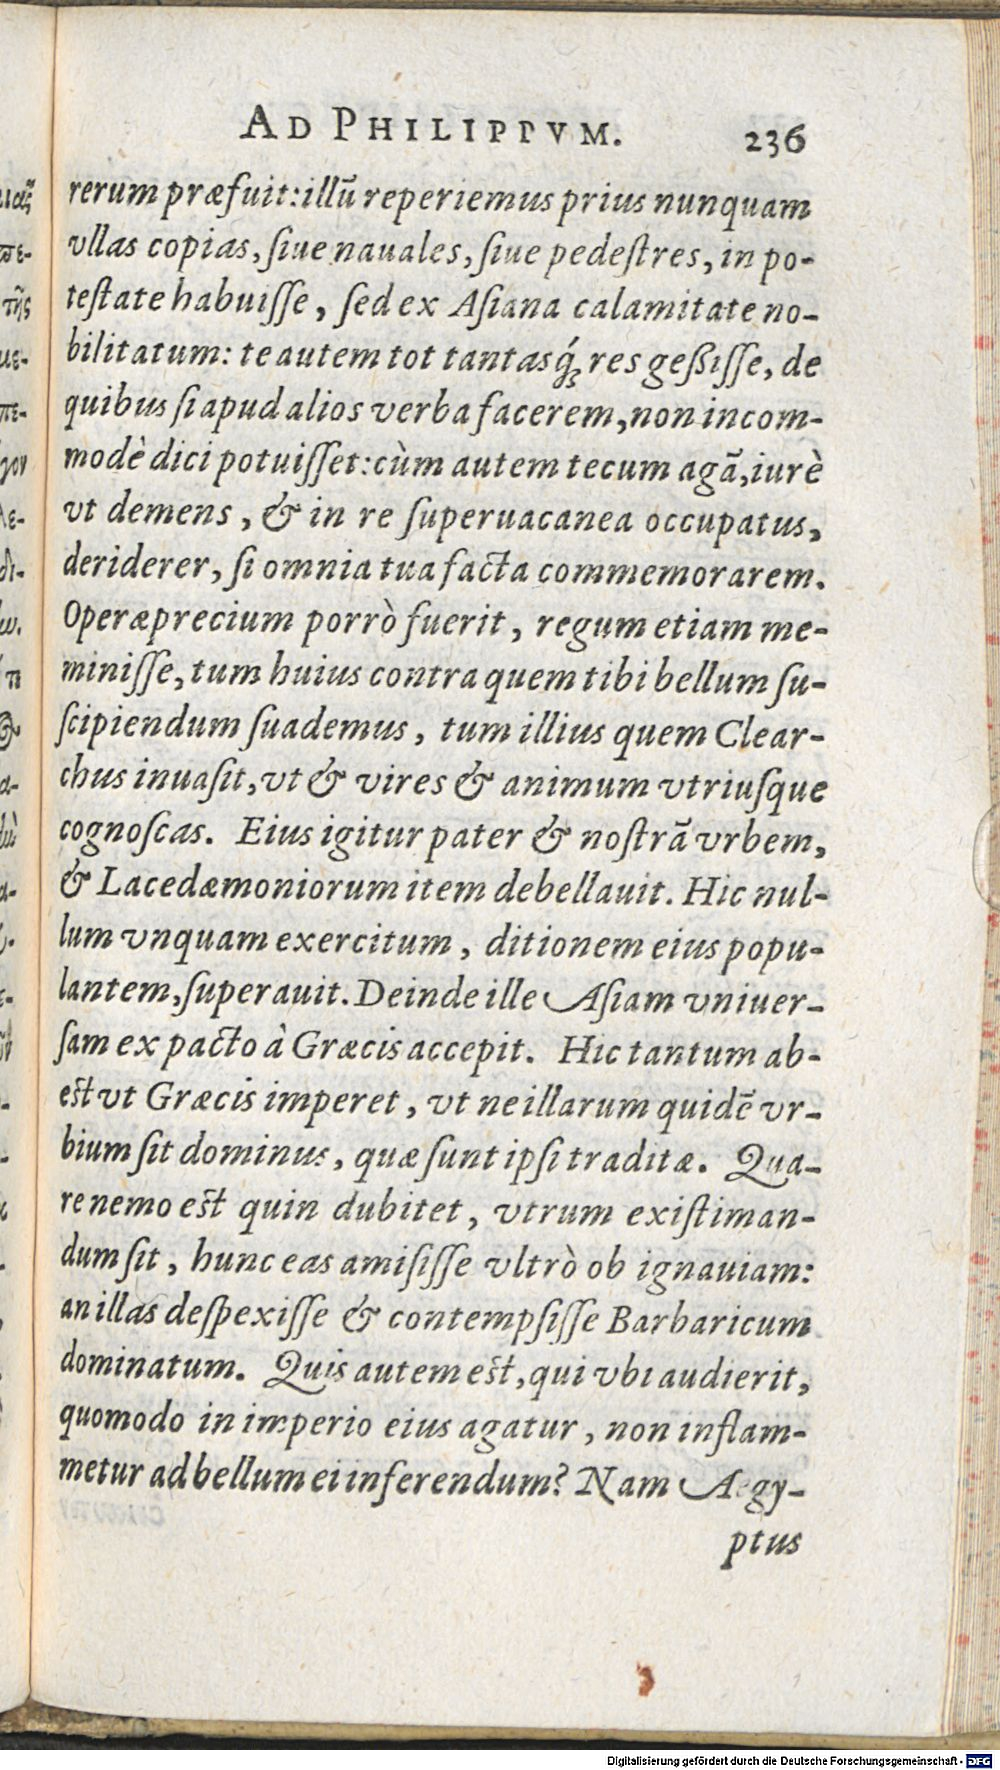 AD PHILIPPVM. 236
rerum præfuit: illũ reperiemus prius nunquam
vllas copias, ſiue nauales, ſiue pedeſtres, in po-
teſtate habuiſſe, ſed ex Aſiana calamitate no-
bilitatum: te autem tot tantasq́; res geßiſſe, de
quibus ſi apud alios verba facerem, non incom-
modè dici potuiſſet: cùm autem tecum agã, iurè
vt demens, & in re ſuperuacanea occupatus,
deriderer, ſi omnia tua facta commemorarem.
Operæprecium porrò fuerit, regum etiam me-
miniſſe, tum huius contra quem tibi bellum ſu-
ſcipiendum ſuademus, tum illius quem Clear-
chus inuaſit, vt & vires & animum vtriuſque
cognoſcas. Eius igitur pater & noſtrã vrbem,
& Lacedæmoniorum item debellauit. Hic nul-
lum vnquam exercitum, ditionem eius popu-
lantem, ſuperauit. Deinde ille Aſiam vniuer-
ſam ex pacto à Græcis accepit. Hic tantum ab-
eſt vt Græcis imperet, vt ne illarum quidẽ vr-
bium ſit dominus, quæ ſunt ipſi traditæ. Qua-
re nemo eſt quin dubitet, vtrum exiſtiman-
dum ſit, hunc eas amiſiſſe vltrò ob ignauiam:
an illas deſpexiſſe & contempſiſſe Barbaricum
dominatum. Quis autem eſt, qui vbi audierit,
quomodo in imperio eius agatur, non inflam-
metur ad bellum ei inferendum? Nam Aegy-
ptus
Digitalisierung gefördert durch die Deutsche Forschungsgemeinschaft - DFG